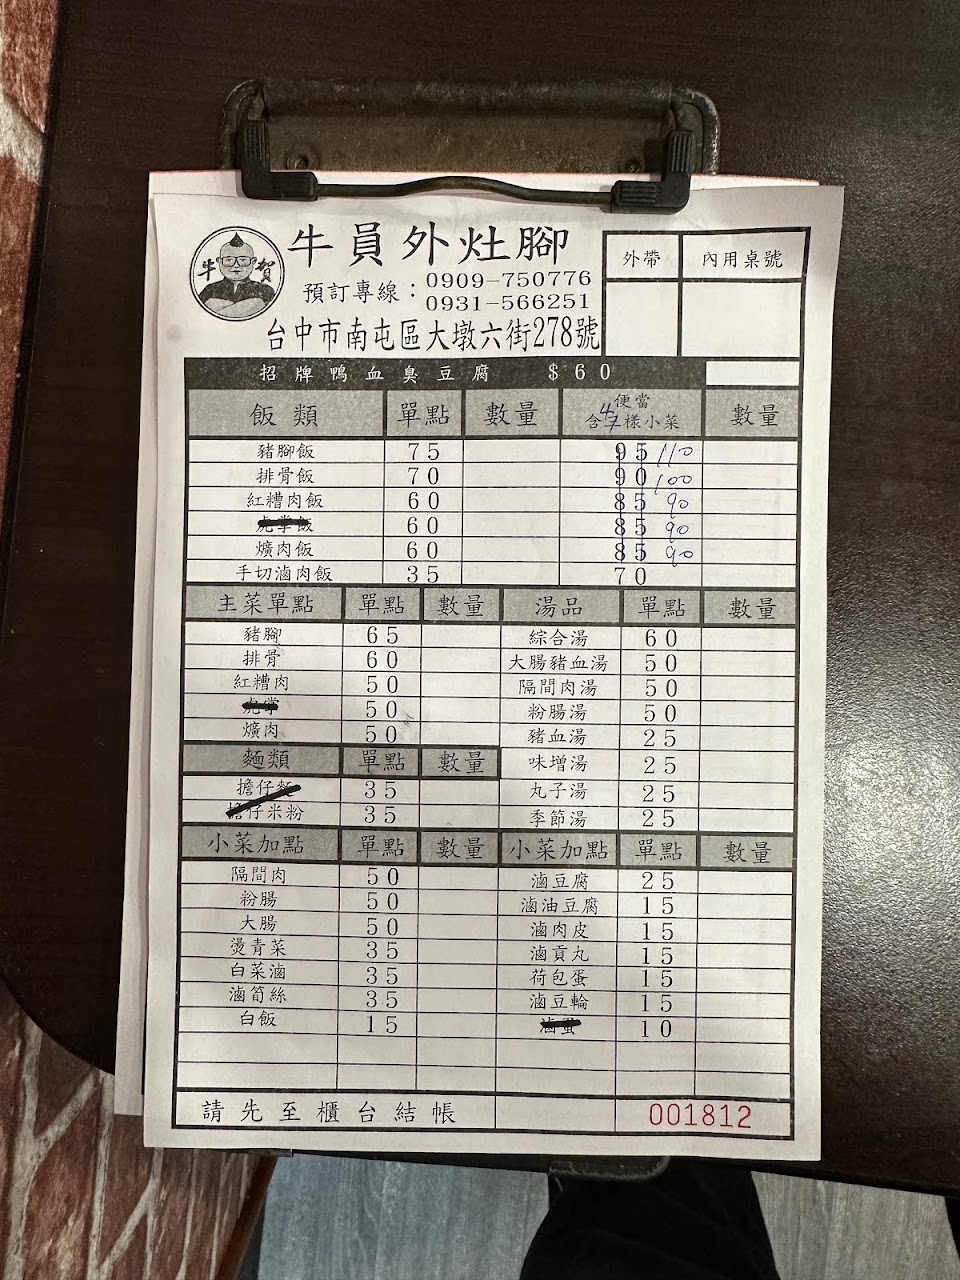 牛員外灶腳
牛 賀
預訂專線：0909-750776
0931-566251
台中市南屯區大墩六街278號
外帶 內用桌號
招牌鴨血臭豆腐 $60
飯類 單點 數量 便當 含4樣小菜 數量
豬腳飯 75 95 110
排骨飯 70 90 100
紅糟肉飯 60 85 90
虎掌飯 60 85 90
爌肉飯 60 85 90
手切滷肉飯 35 70
主菜單點 單點 數量 湯品 單點 數量
豬腳 65 綜合湯 60
排骨 60 大腸豬血湯 50
紅糟肉 50 隔間肉湯 50
虎掌 50 粉腸湯 50
爌肉 50 豬血湯 25
麵類 單點 數量 味增湯 25
擔仔麵 35 丸子湯 25
擔仔米粉 35 季節湯 25
小菜加點 單點 數量 小菜加點 單點 數量
隔間肉 50 滷豆腐 25
粉腸 50 滷油豆腐 15
大腸 50 滷肉皮 15
燙青菜 35 滷貢丸 15
白菜滷 35 荷包蛋 15
滷筍絲 35 滷豆輪 15
白飯 15 滷蛋 10
請先至櫃台結帳 001812